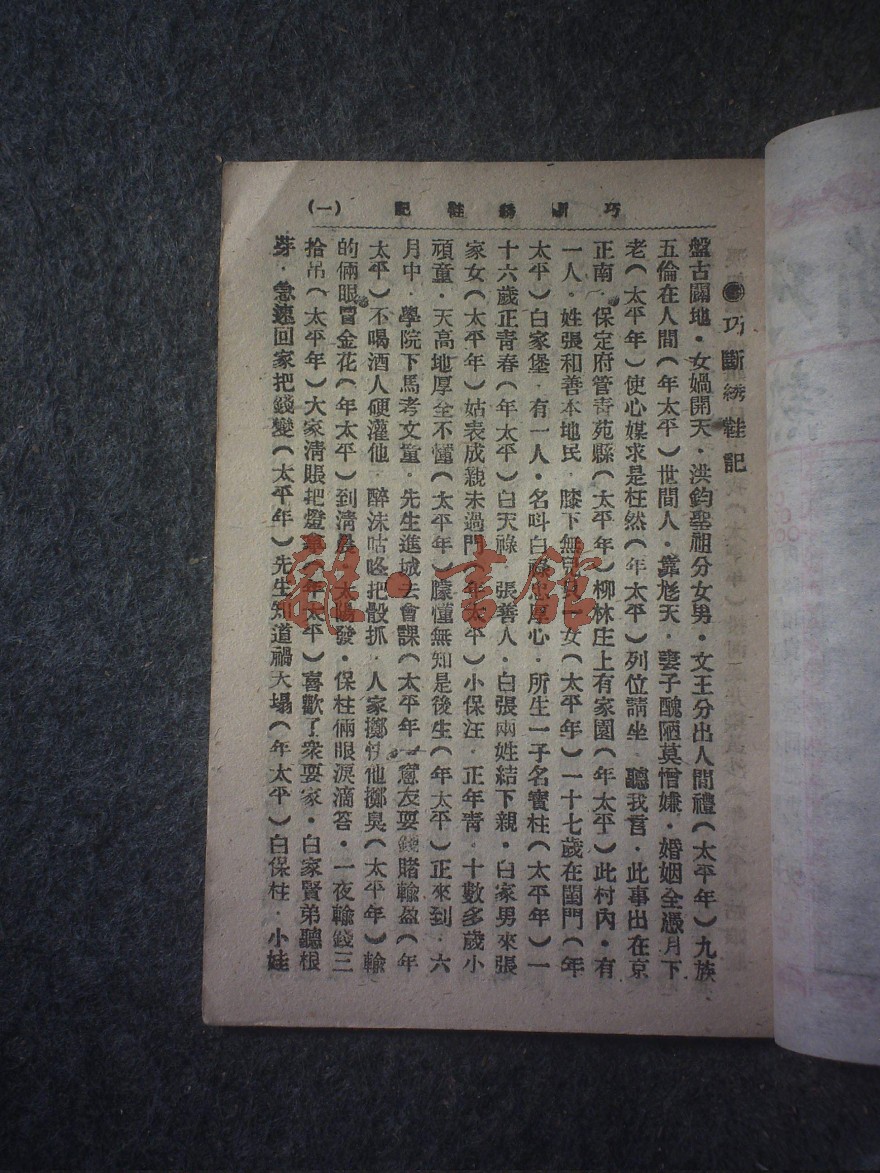 巧斷綉鞋記 (一)
巧斷綉鞋記
盤古闢地·女媧開天·洪鈞聖祖分女男·文王分出人間禮(太平年)九族
五倫在人間(年太平)世間人·靠尨天·妻子醜陋莫憎嫌·婚姻全憑月下
老(太平年)使心媒求是枉然(年太平)列位請坐·聽我言·此事出在京
正南·保定府管靑苑縣(太平年)柳林庄上有家園(年太平)此村內·有
一人·姓張和善本地民·膝下無兒一女(太平年)一十七歲在閨門(年
太平)白家堡·有一人·名呌白祿忠厚心·所生一子名寶柱(太平年)一
十六歲正靑春(年太平)白天祿·張善人·白張兩姓結下親·白家男來張
家女(太平年)姑表成親未過門(年太平)小保汪·正年靑·十數多歲小
頑童·天高地厚全不懂(太平年)朦懂無知是後生(年太平)正來到·六
月中·學院下馬考文童·先生進城去會課(太平年)憲友耍錢賭輸盈(年
太平)不喝酒人硬灌他·醉沫咕咚把骰抓·人家擲快他擲臭(太平年)輸
的倆眼冒金花(年太平)到淸晨·太陽發·保柱倆眼淚滴答·一夜輸錢三
拾吊(太平年)大家淸賬把燈拿(年太平)喜歡了衆耍家·白家賢弟聽根
芽·急速回家把錢變(太平年)先生知道禍大塌(年太平)白保柱·小娃
雜·書館